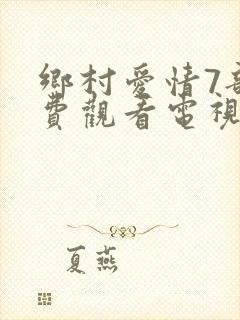 鄉村愛情7部
費觀看電視
夏燕